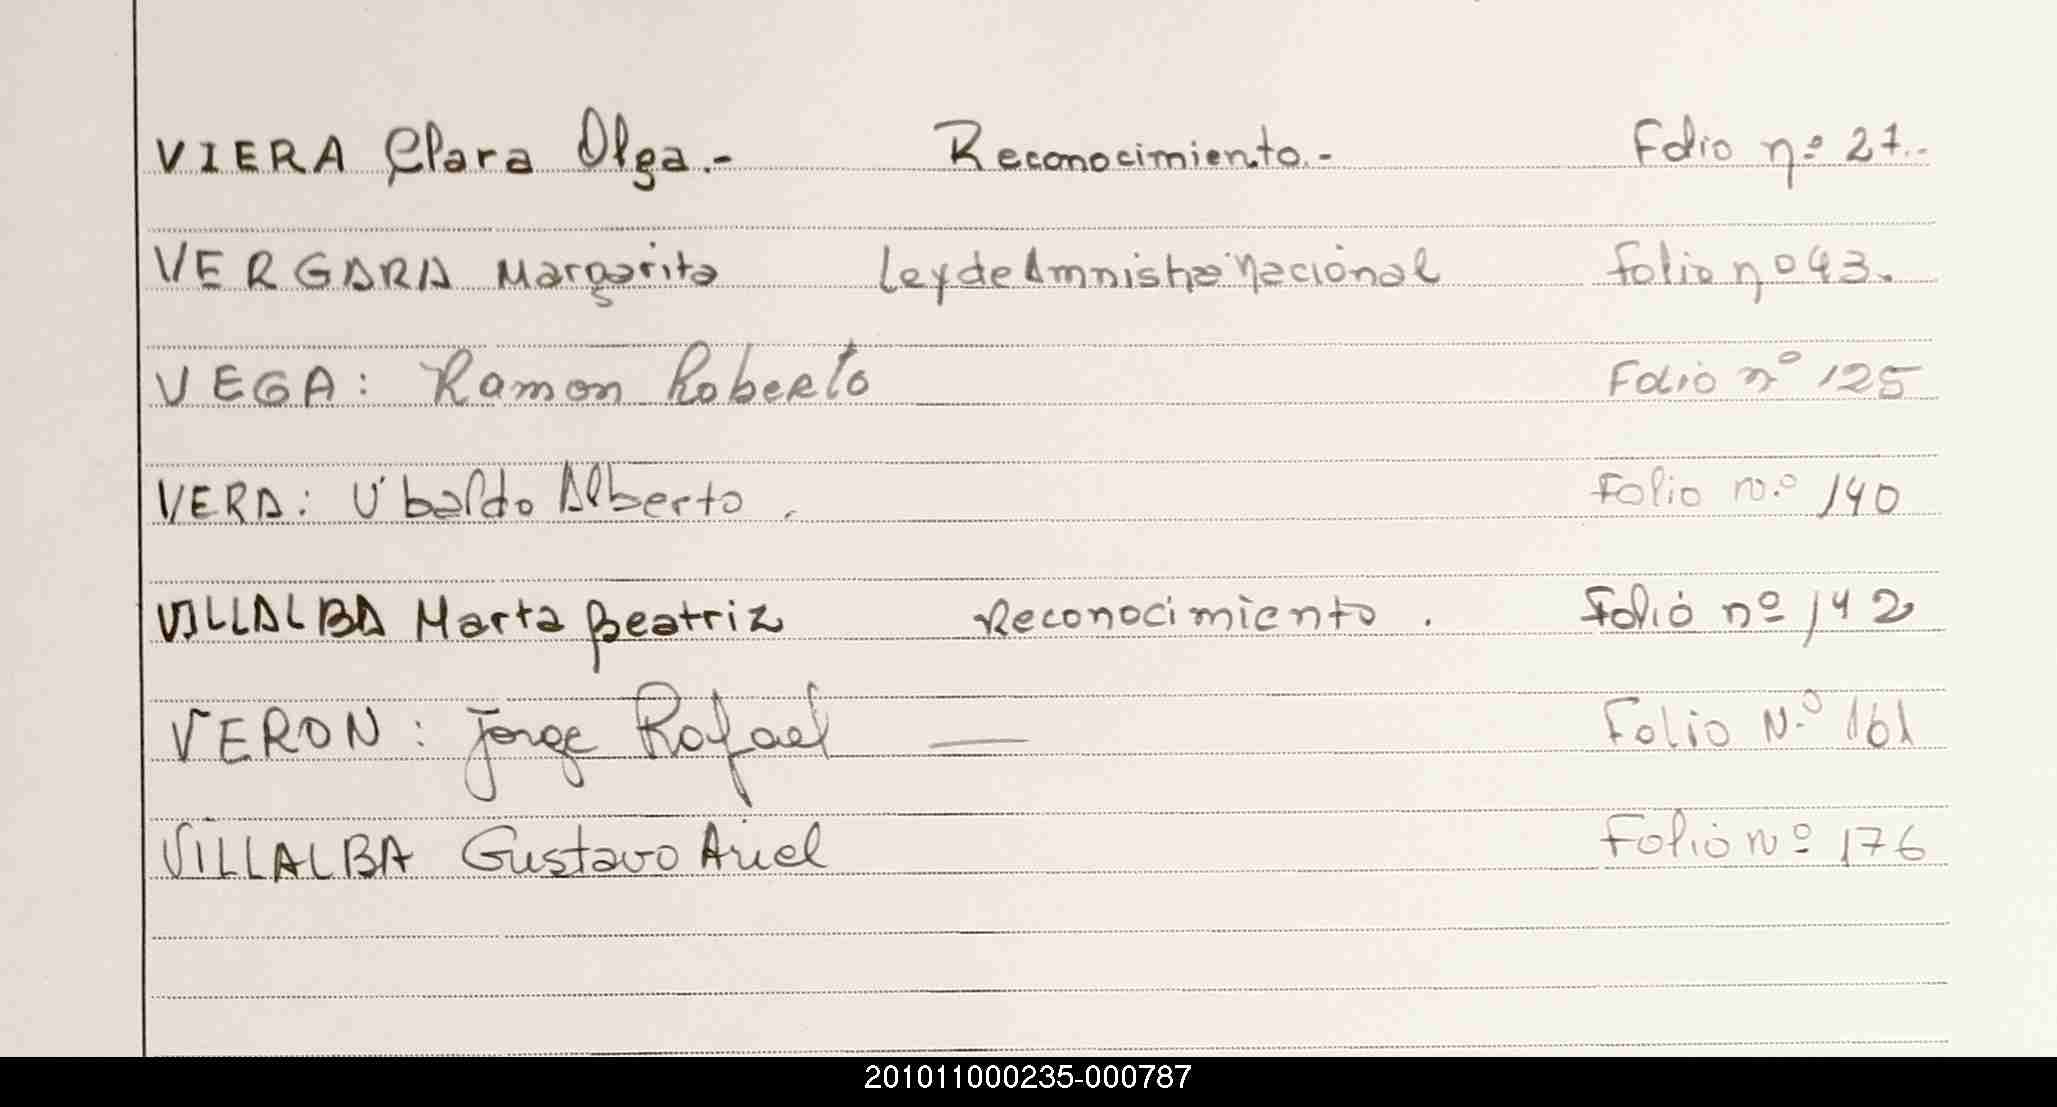 VIERA Clara Olga.- Reconocimiento.- Folio nº 27.-
VERGARA Margarita Ley de Amnistia Nacional folio nº 43.
VEGA: Ramon Roberto Folio nº 125
VERA: Ubaldo Alberto. Folio nº 140
VILLALBA Marta Beatriz Reconocimiento. Folio nº 142
VERON: Jorge Rafael — Folio N.º 161
VILLALBA Gustavo Ariel Folio nº 176
201011000235-000787